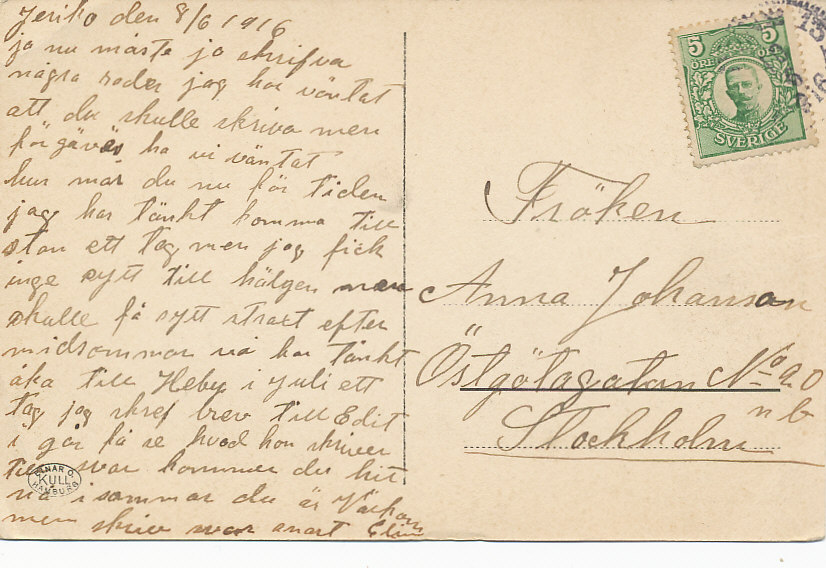 Jeriko den 8/6 1916
ja nu måste ja skrifva
några rader jag har väntat
att du skulle skriva men
förgäves ha vi väntat
hur mår du nu för tiden
jag har tänkt komma till
stan ett tag men jag fick
inge sytt till hälgen men
skulle få sytt straxt efter
midsommar vi har tänkt
åka till Heby i juli ett
tag jag skref brev till Edit
i går få se hvad hon skriver
till svar kommer du hit
nå i sommar du är Välkom
men skriv svar snart Elin
5 5
ÖRE
SVERIGE
Fröken
Anna Johanson
Östgötagatan No 20
n b
Stockholm
EINAR O. KULL HAMBURG